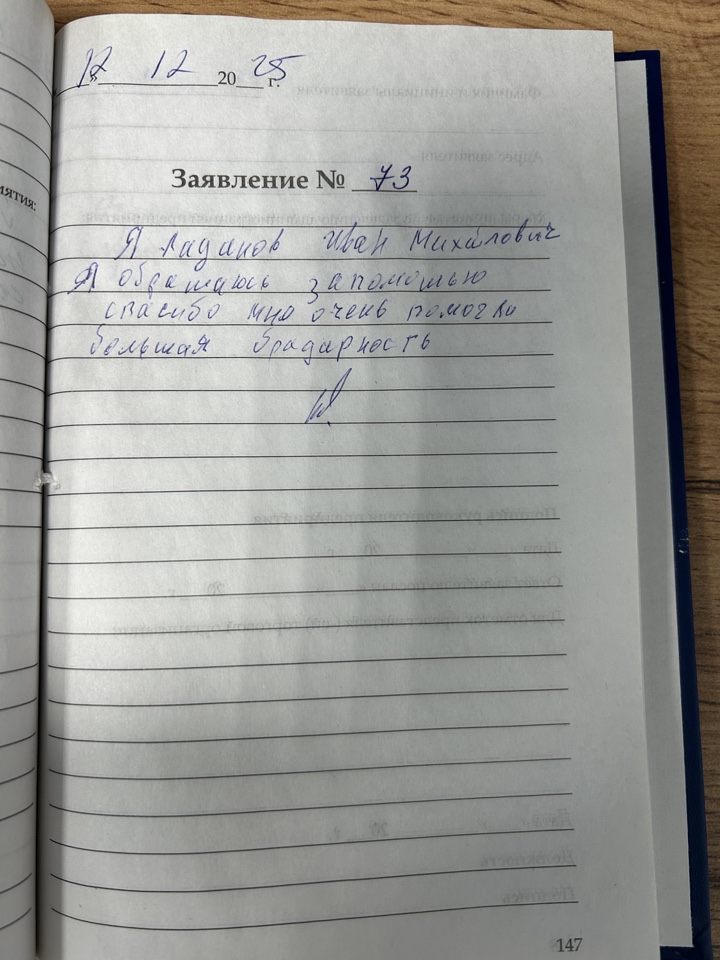 12 12 2025 г.
Заявление № 73
Я Ладанов Иван Михалович
Я обращаюсь запомошью
спасибо мне очень помогли
большая брадарность
147